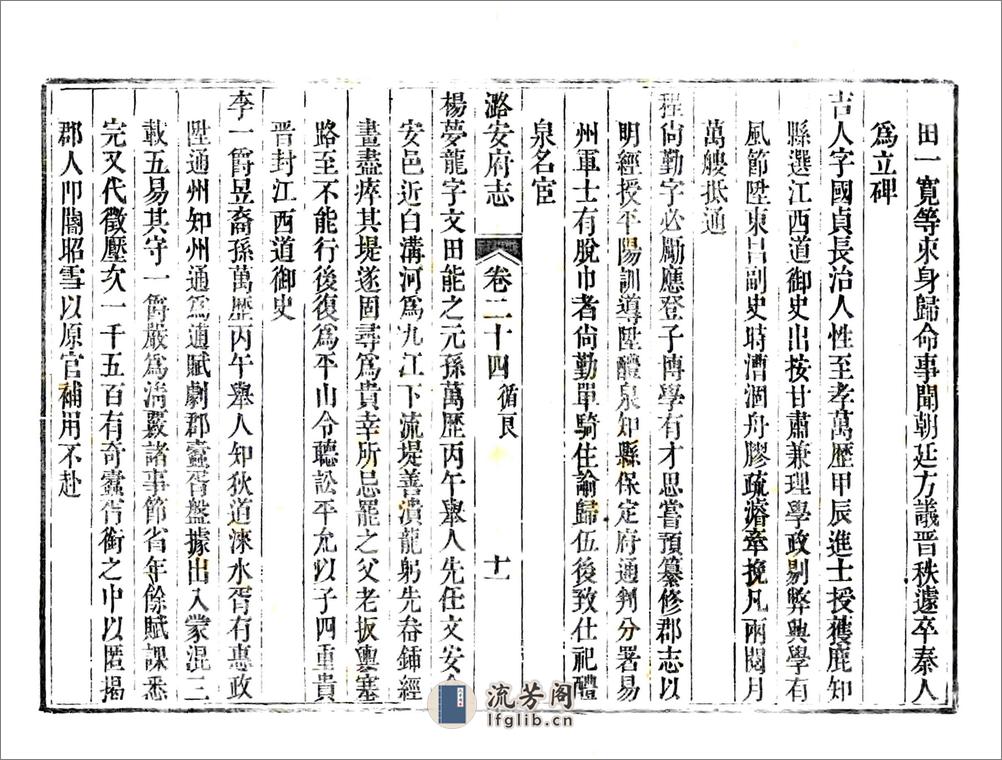 田一寬等來身歸命事聞朝廷方議晉秩遽卒秦人
爲立碑
吉人字國貞長治人性至孝萬歷甲辰進士授獲鹿知
縣選江西道御史出按甘肅兼理學政剔弊興學有
風節陞東昌副史時漕涸舟膠疏濬牽挽凡兩閱月
萬艘抵通
程尙勤字必勵應登子博學有才思嘗預纂修郡志以
明經授平陽訓導陞醴泉知縣保定府通判分署易
州軍士有脫巾者尙勤單騎往諭歸伍後致仕祀醴
泉名宦
潞安府志 卷二十四 循良 十一
楊夢龍字文田能之元孫萬歷丙午舉人先任文安令
安邑近白溝河爲九江下流堤善潰龍躬先畚鍤經
畫盡瘁其堤遂固尋爲貴幸所忌罷之父老扳轅塞
路至不能行後復爲平山令聽訟平允以子四重貴
晉封江西道御史
李一爵昱裔孫萬歷丙午舉人知狄道涑水胥有惠政
陞通州知州通爲逋賦劇郡蠹胥盤據出入蒙混三
載五易其守一爵嚴爲淸覈諸事節省年餘賦課悉
完又代徵壓欠一千五百有奇蠹胥銜之中以匿揭
郡人叩閽昭雪以原官補用不赴
流芳阁
lfglib.cn